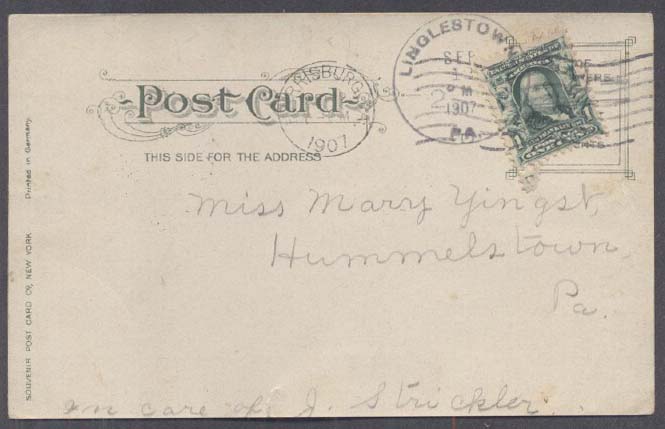 LINGLESTOWN
SEP
1
PM
1907
PA.
RRISBURG, PA.
1907
Post Card
THIS SIDE FOR THE ADDRESS
OF
CENTS
Miss Mary Yingst,
Hummelstown,
Pa.
in care of J. Strickler.
SOUVENIR POST CARD CO, NEW YORK
Printed in Germany